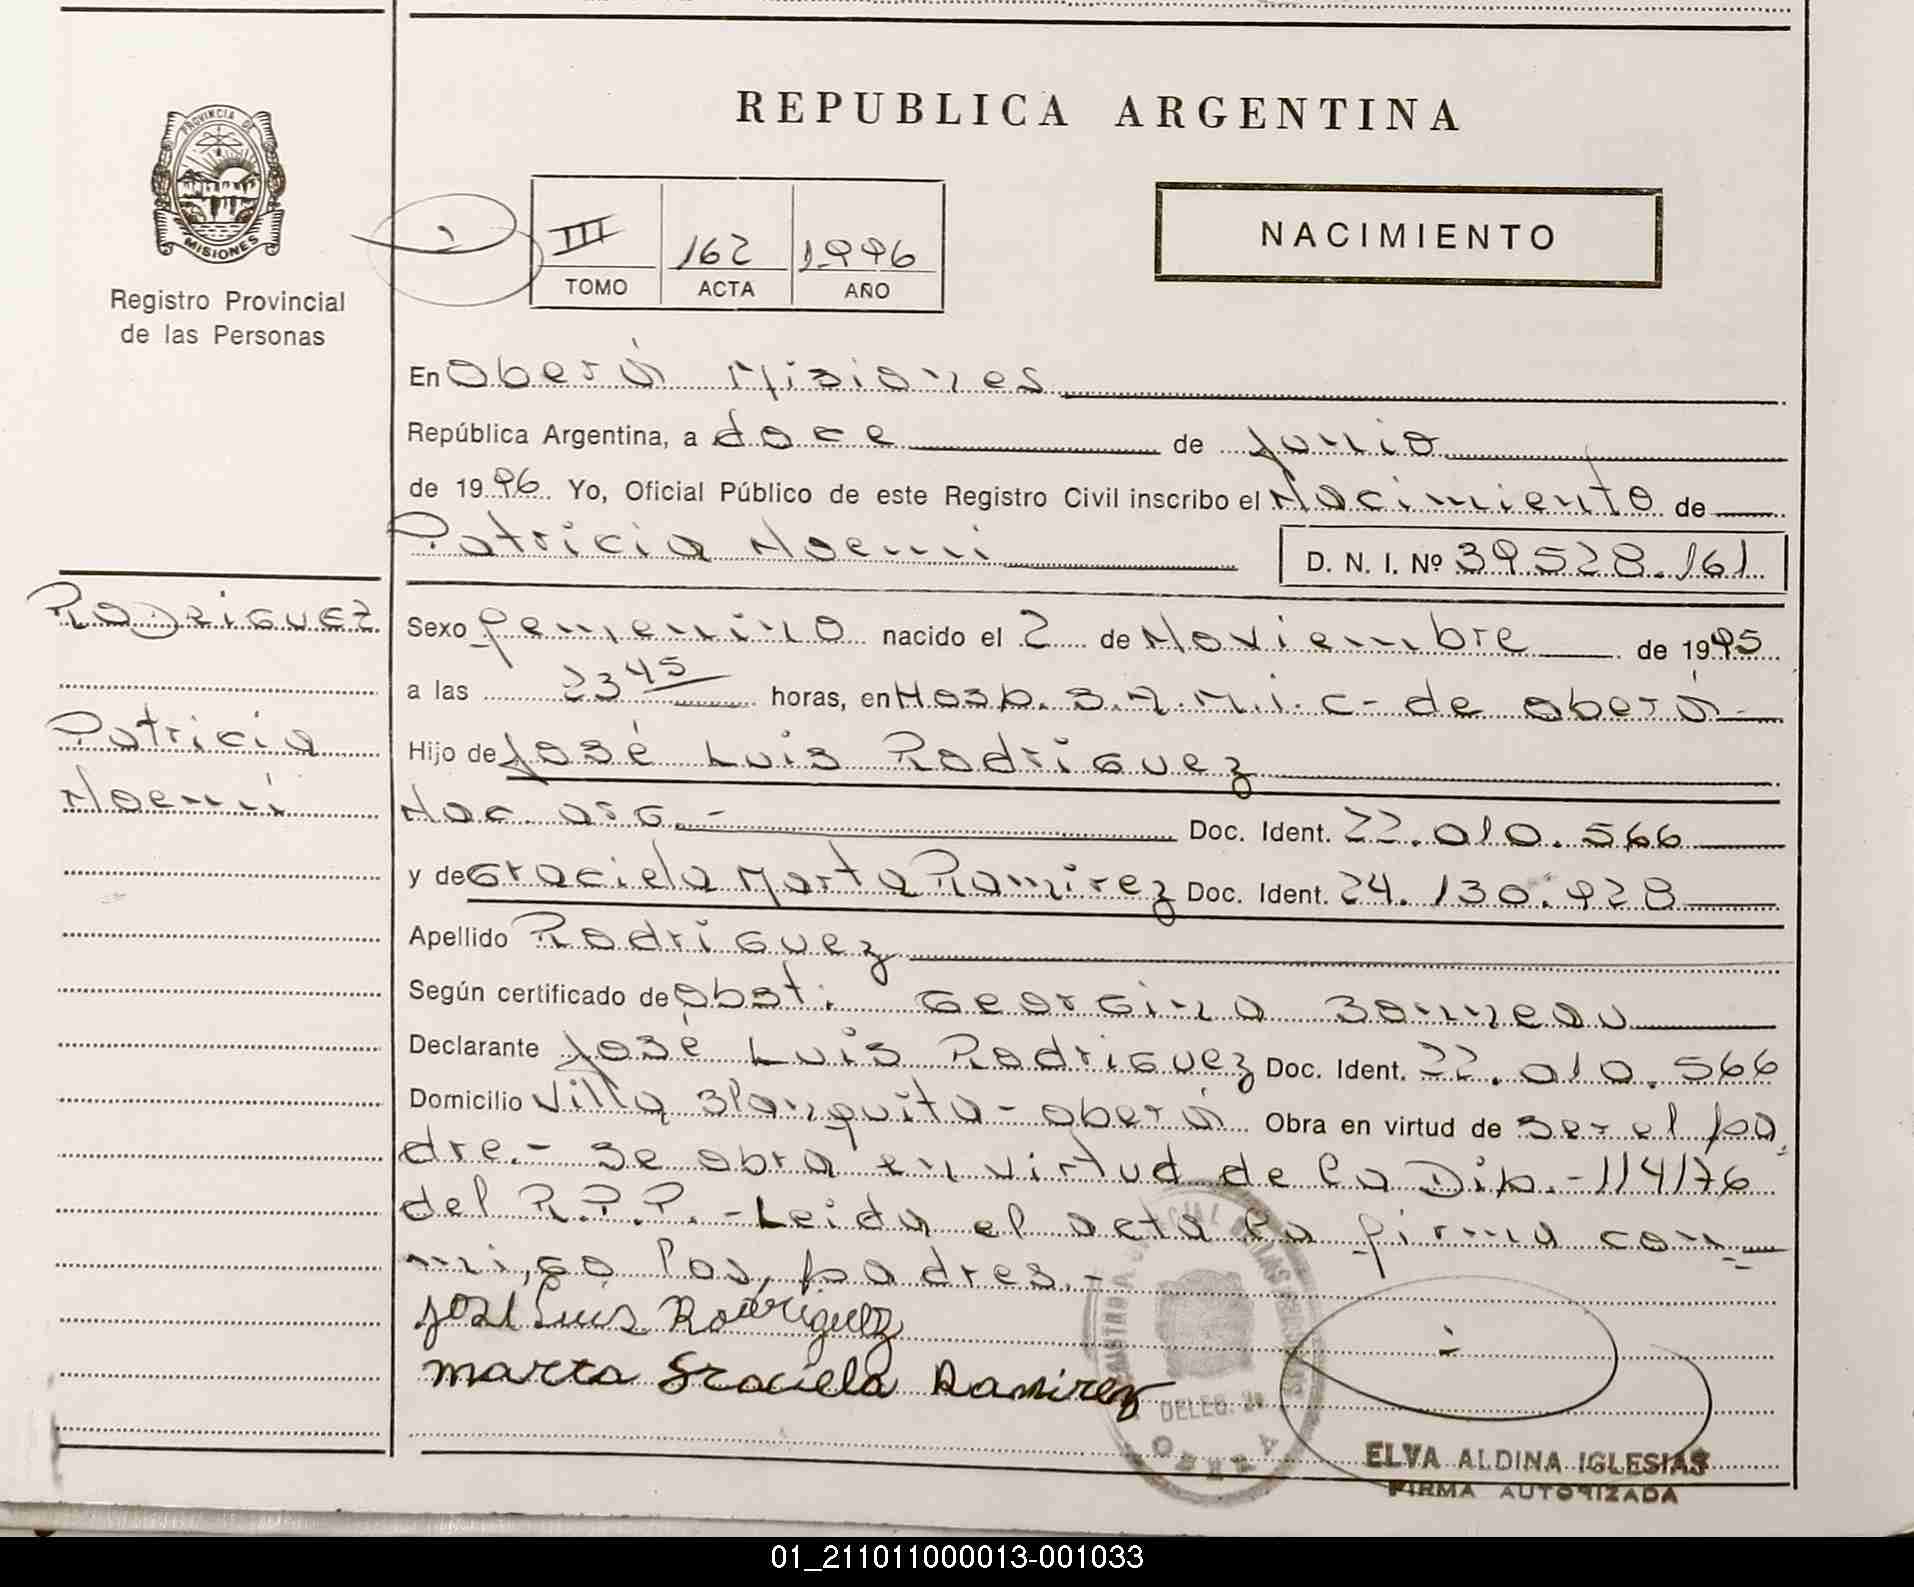 REPUBLICA ARGENTINA
PROVINCIA DE
MISIONES
Registro Provincial
de las Personas
III 162 1996
TOMO ACTA AÑO
NACIMIENTO
En Oberá Misiones
República Argentina, a doce de junio
de 1996. Yo, Oficial Público de este Registro Civil inscribo el Nacimiento de
Patricia Noemi D. N. I. Nº 39528.161
Rodriguez
Patricia
Noemí
Sexo femenino nacido el 2 de Noviembre de 1995
a las 23 45 horas, en Hosp. S.A.M.i.c- de Oberá-
Hijo de José Luis Rodriguez
Nac. arg.- Doc. Ident. 22.010.566
y de Graciela Marta Ramirez Doc. Ident. 24.130.928
Apellido Rodriguez
Según certificado de Obst. Georgina Bonneau
Declarante José Luis Rodriguez Doc. Ident. 22.010.566
Domicilio Villa Blanquita - Oberá Obra en virtud de ser el pa
dre.- Se obra en virtud de la Dip.-114/76
del R.P.P.-Leida el acta la firma con-
migo los padres.-
José Luis Rodriguez
Marta Graciela Ramirez
DELEG.
OBERA
ELVA ALDINA IGLESIAS
FIRMA AUTORIZADA
01_211011000013-001033